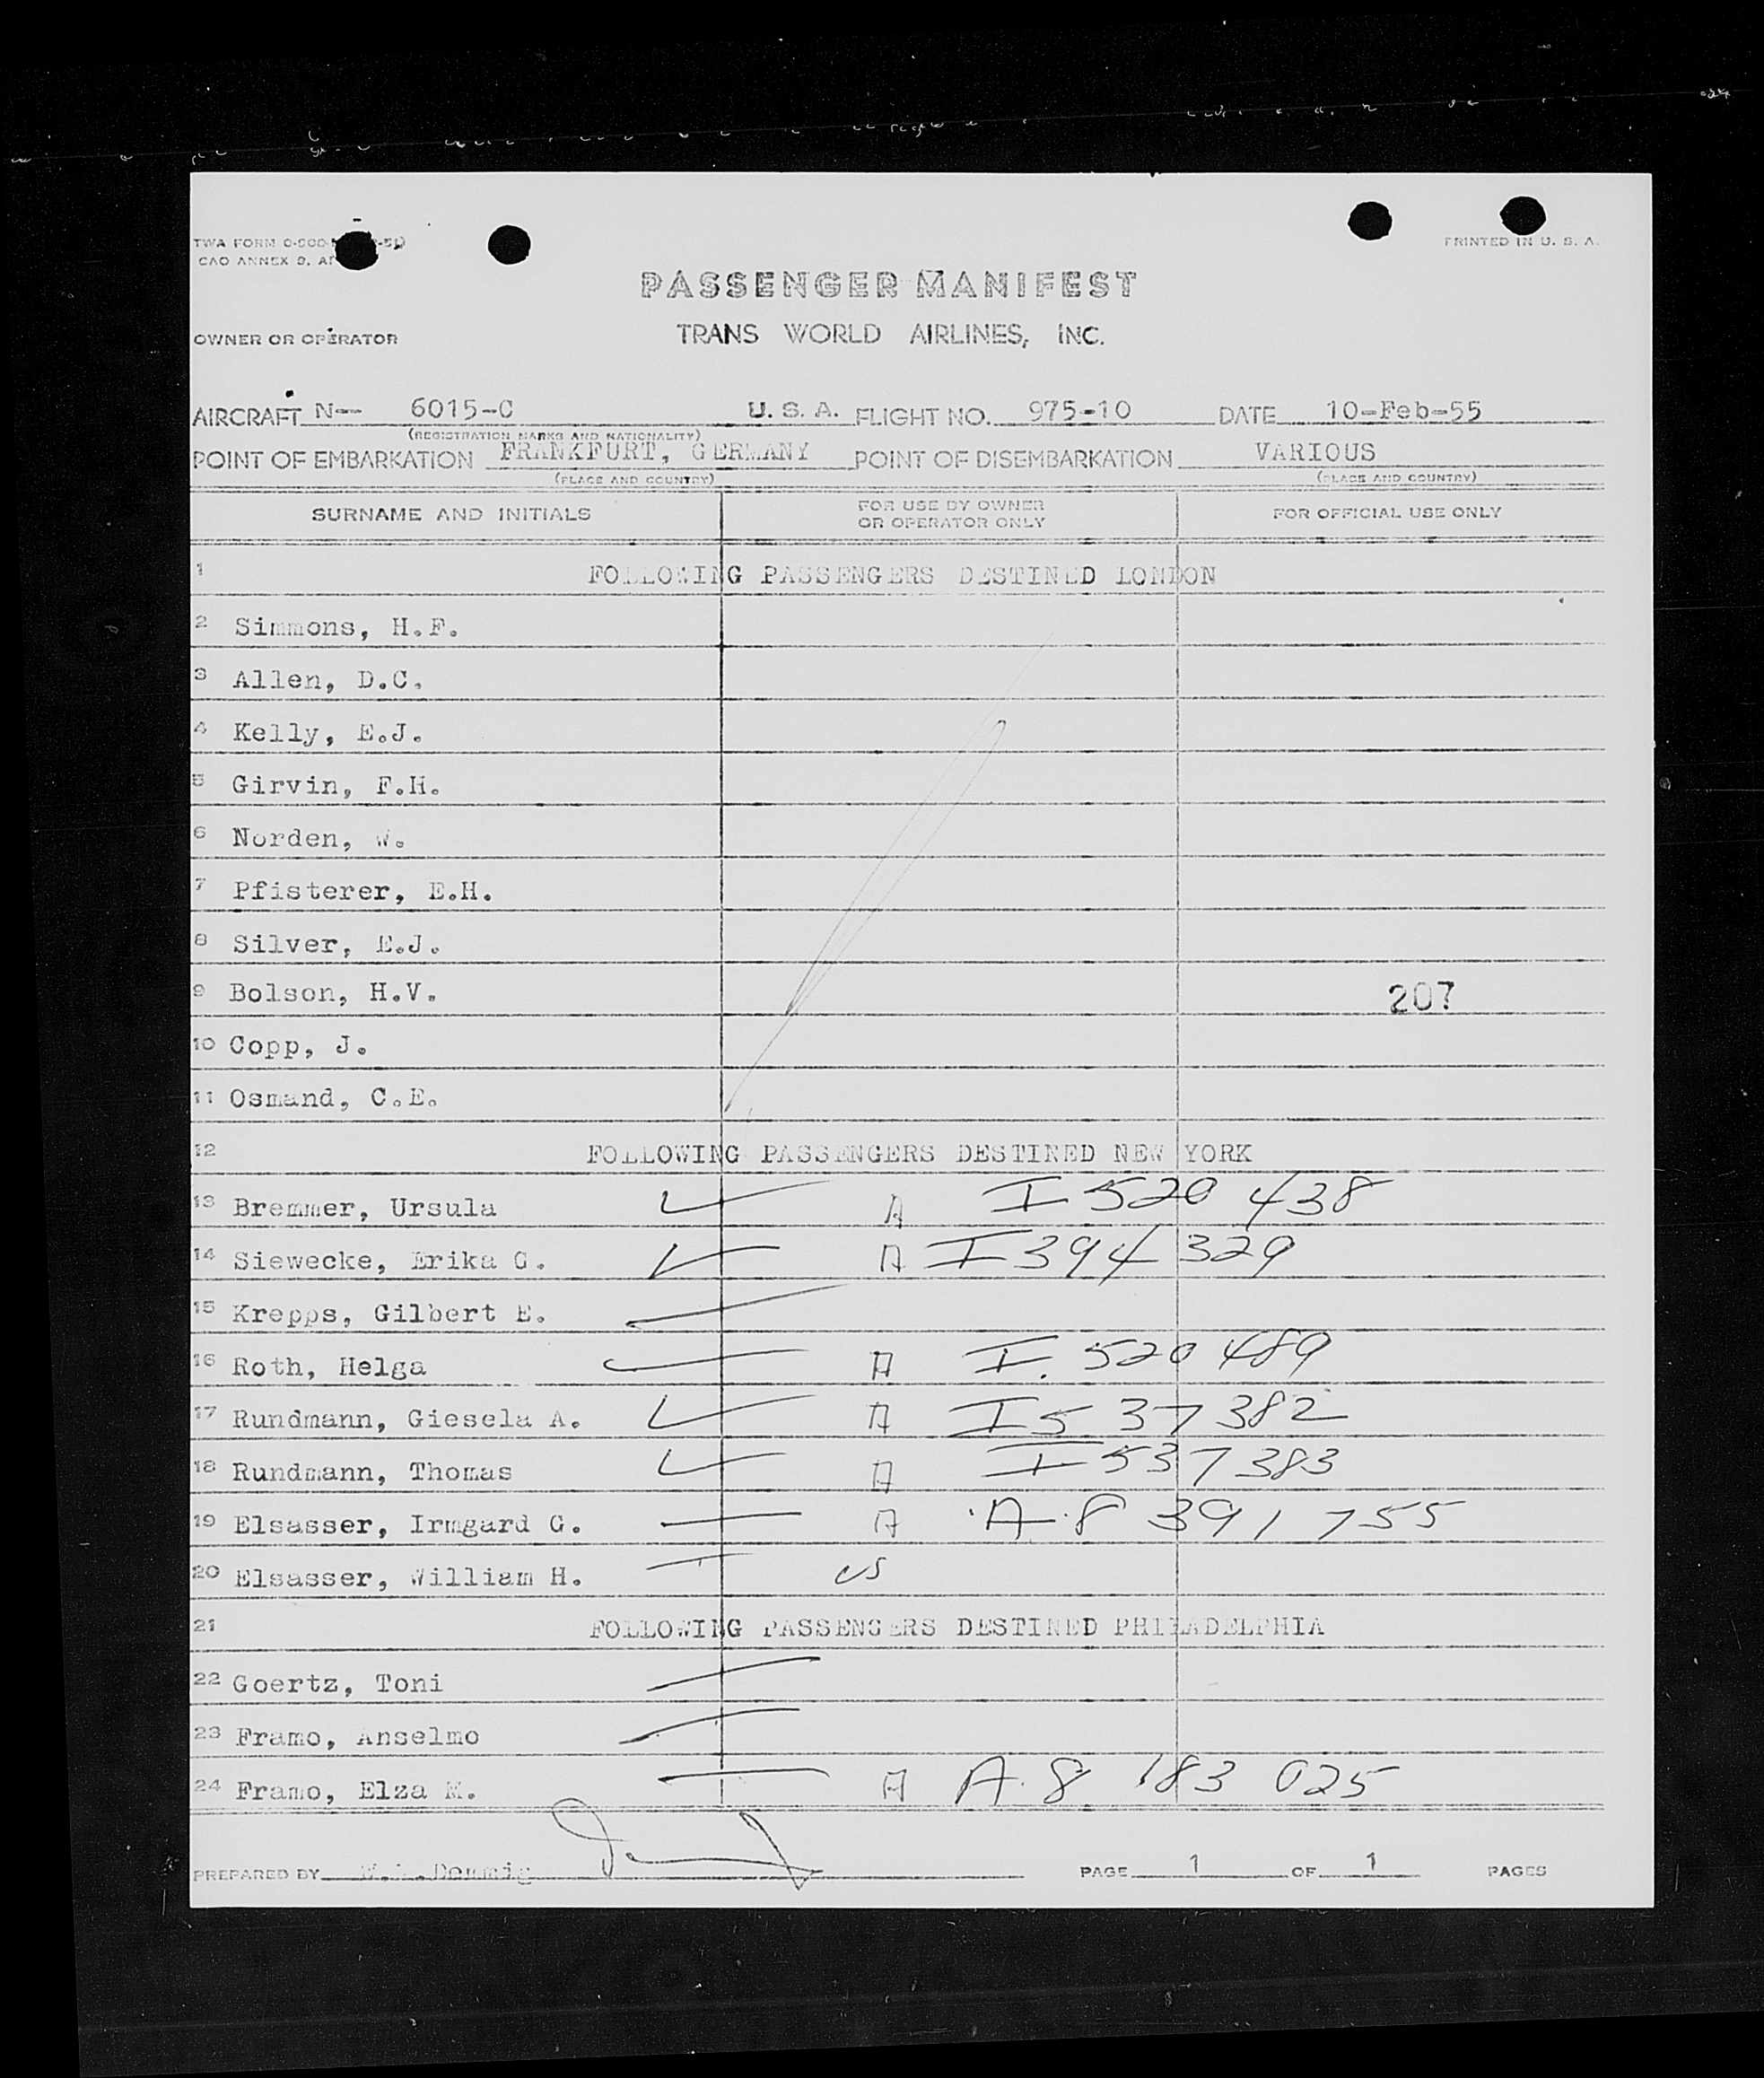 TWA FORM
PRINTED IN U. S. A.
CAO ANNEX 9,
PASSENGER MANIFEST
OWNER OR OPERATOR TRANS WORLD AIRLINES, INC.
AIRCRAFT N— 6015-C U. S. A. FLIGHT NO. 975-10 DATE 10-Feb-55
(REGISTRATION MARKS AND NATIONALITY)
POINT OF EMBARKATION FRANKFURT, GERMANY POINT OF DISEMBARKATION VARIOUS
(PLACE AND COUNTRY) (PLACE AND COUNTRY)
SURNAME AND INITIALS FOR USE BY OWNER OR OPERATOR ONLY FOR OFFICIAL USE ONLY
1 FOLLOWING PASSENGERS DESTINED LONDON
2 Simmons, H.F.
3 Allen, D.C.
4 Kelly, E.J.
5 Girvin, F.H.
6 Norden, W.
7 Pfisterer, E.H.
8 Silver, E.J.
9 Bolson, H.V. 207
10 Copp, J.
11 Osmand, C.E.
12 FOLLOWING PASSENGERS DESTINED NEW YORK
13 Bremmer, Ursula A I 520 438
14 Siewecke, Erika G. A I 394 329
15 Krepps, Gilbert E.
16 Roth, Helga A I. 520 489
17 Rundmann, Giesela A. A I 537 382
18 Rundmann, Thomas A I 537 383
19 Elsasser, Irmgard G. A A-8 391 755
20 Elsasser, William H. US
21 FOLLOWING PASSENGERS DESTINED PHILADELPHIA
22 Goertz, Toni
23 Framo, Anselmo
24 Framo, Elza M. A A-8 183 025
PREPARED BY PAGE 1 OF 1 PAGES